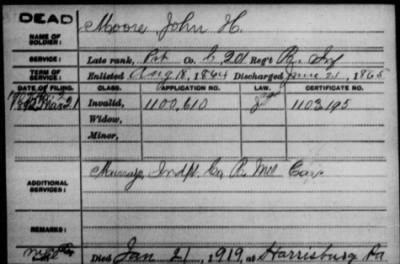 DEAD
Moore, John H.
NAME OF SOLDIER:
SERVICE:
Late rank, Pvt Co. 201 Reg't Pa. Inf
TERM OF SERVICE:
Enlisted Aug 18, 1864 Discharged June 21, 1865
DATE OF FILING. CLASS. APPLICATION NO. LAW. CERTIFICATE NO.
Invalid, 1100,610 1103,195
Widow,
Minor,
ADDITIONAL SERVICES:
Indpt. Co. Cav
REMARKS:
Died Jan 21, 1919, at Harrisburg Pa